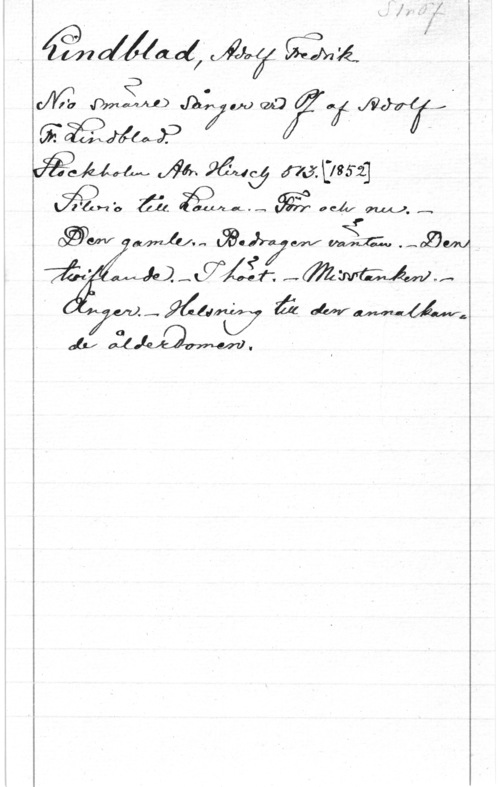 Lindblad, Adolf Fredrik.
Nio smärre sånger vid Pf af Adolf
Fr. Lindblad.
Stockholm Abr. Hirsch 513. [1852]
Silvio till Laura. – Förr och nu. –
Den gamle. – Bedragen väntan. – Den
tviflande. – I höet. – Misstanken. –
Ånger. – Helsning till den annalkan-
de ålderdomen.